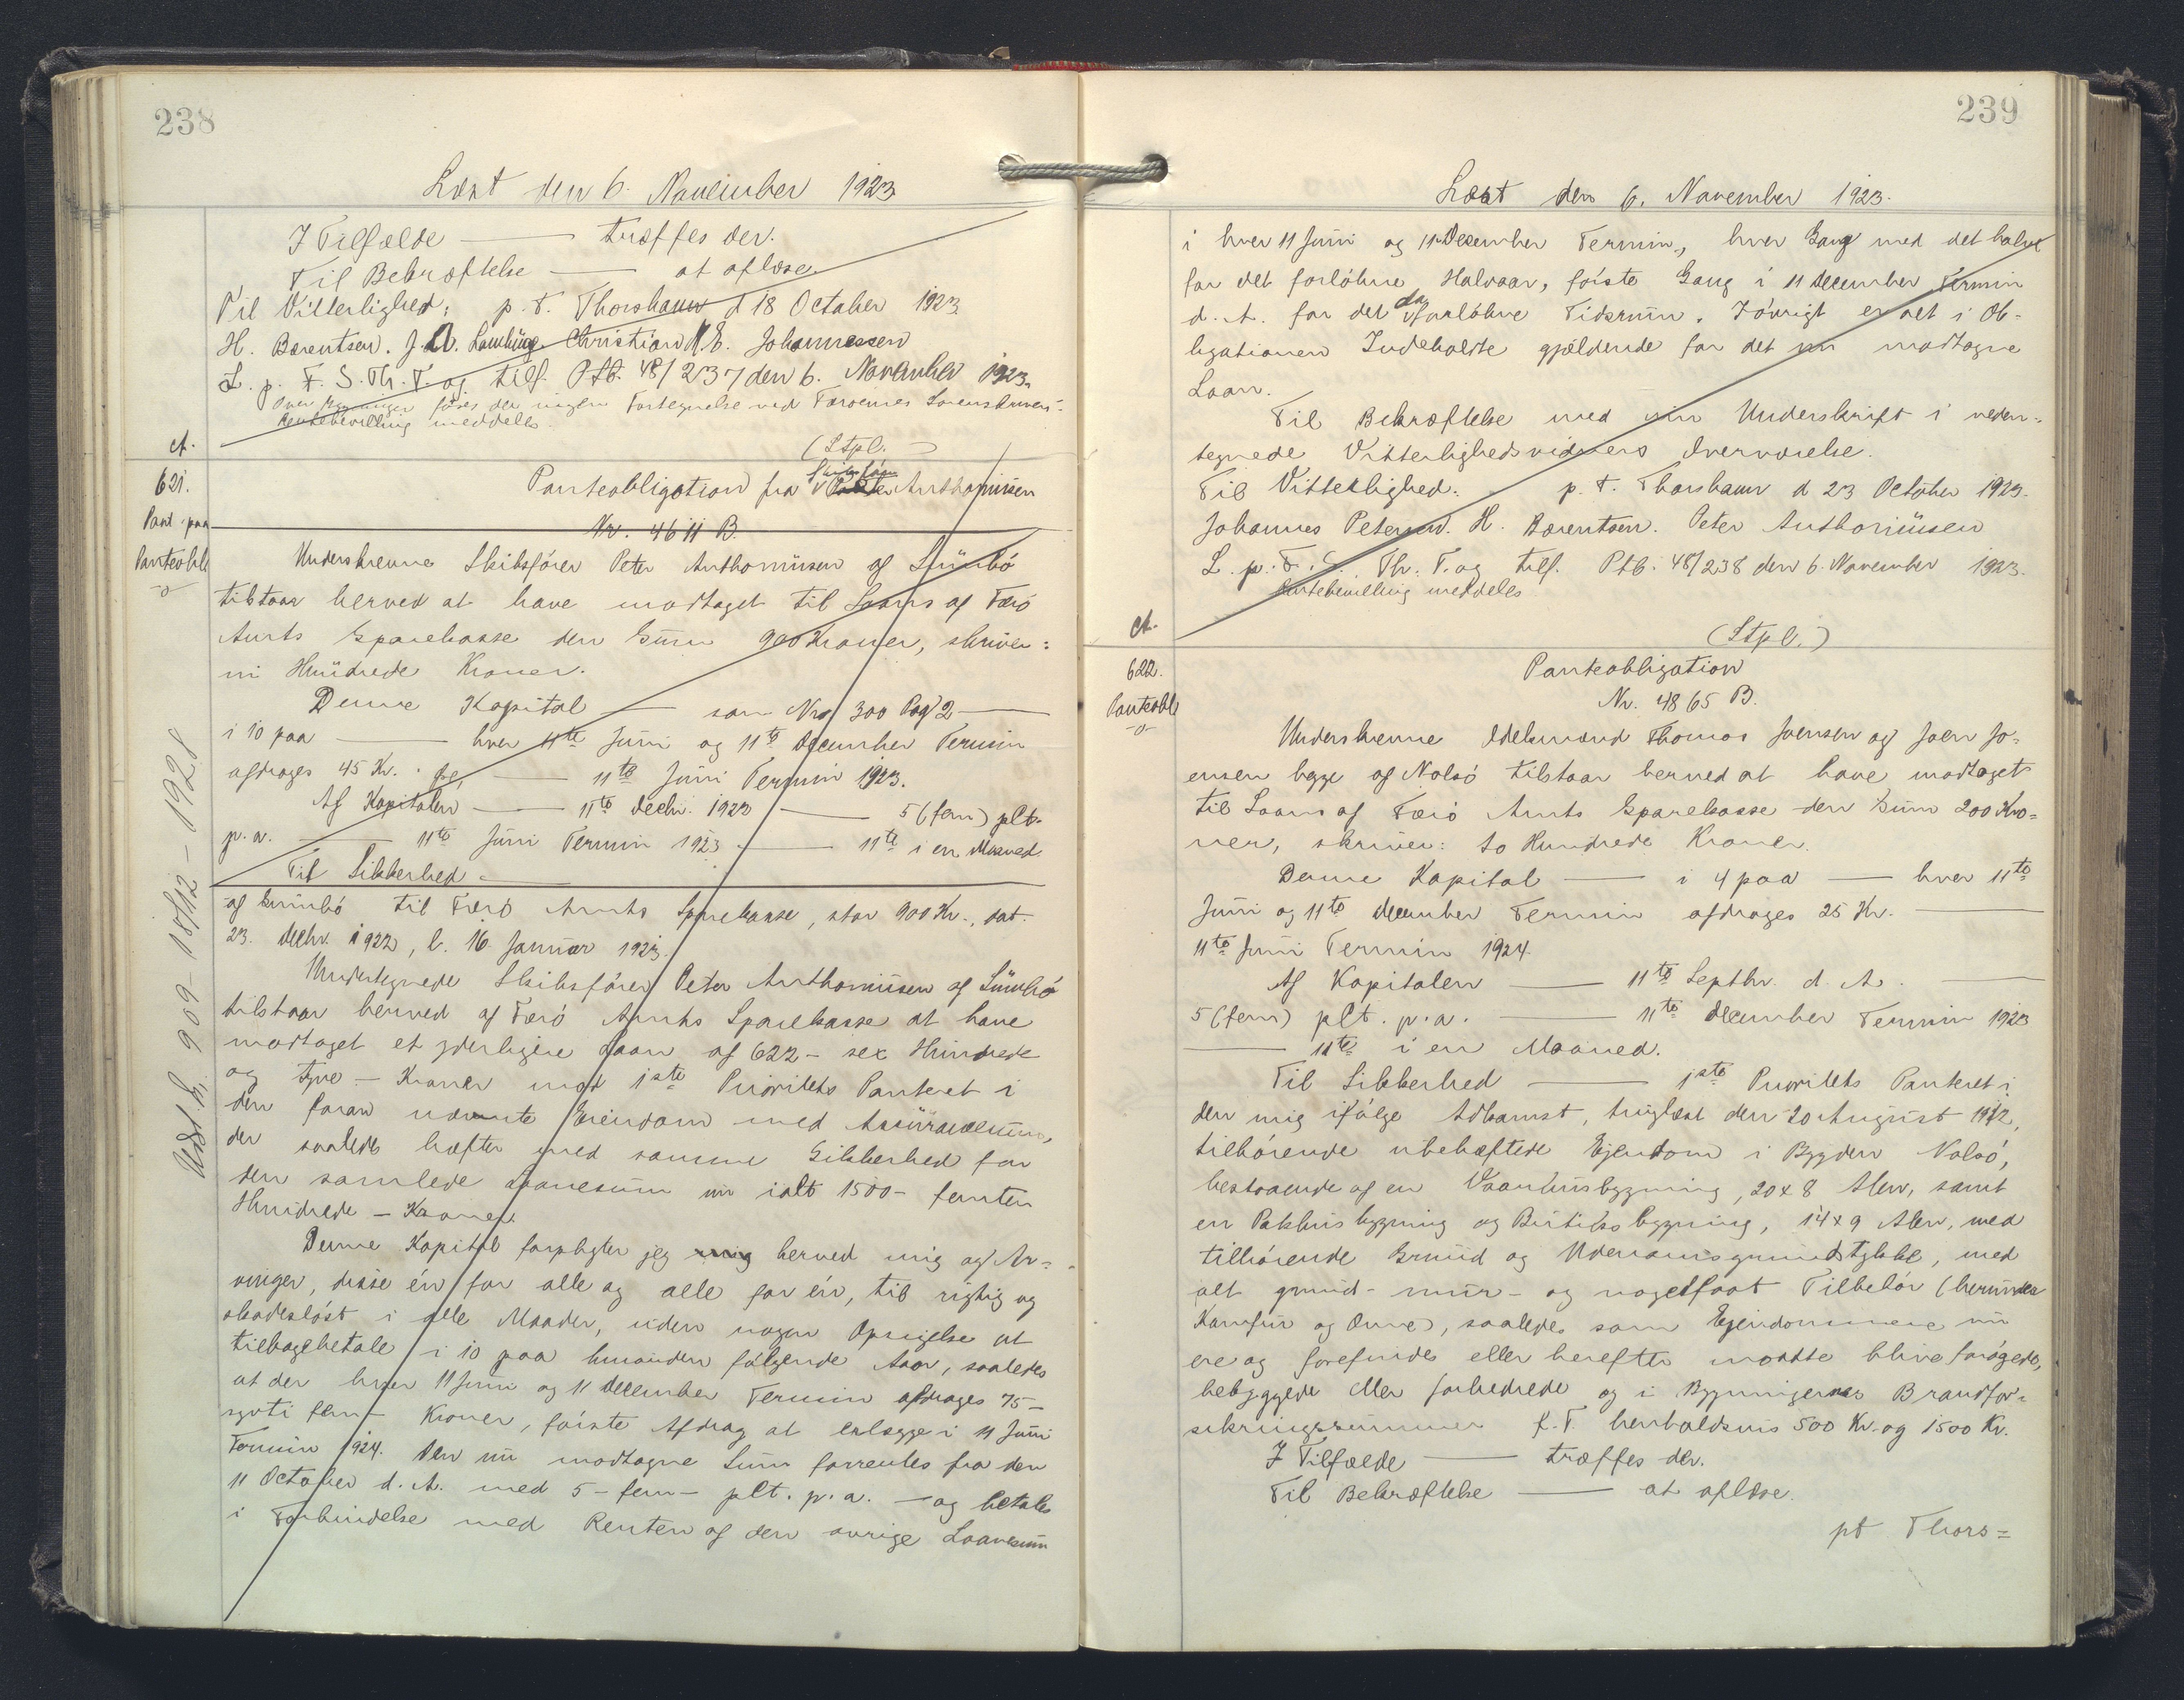 238
Læst den 6. November 1923
I Tilfælde — træffes der.
Til Bekræftelse — at aflæse.
Til Vitterlighed: p. t. Thorshavn d 18 October 1923
H. Børentsen. J. A. Christian M. E. Johannessen
L. p. F. S. Th. T. og tilf. Ptb. 48/237 den 6. November 1923.
Over Bygninger føres der ingen Fortegnelse ved Færøernes Sorenskriveri.
Rentebevilling meddeles.
A.
(Stpl. )
621.
Pant paa
Panteobl
Skibsfører
Panteobligation fra Anthoniüsen
Nr. 4611 B.
Underskrevne Skibsfører Peter Anthoniüsen af Sümbö
tilstaar herved at have modtaget til Laans af Færö
Amts Sparekasse den Süm 900 Kroner, skriver:
ni Hündrede Kroner.
Denne Kapital — som Nro 300 Pag 2 —
i 10 paa — hver 11te Jüni og 11te December Termin
afdrages 45 Kr. — 11te Jüni Termin 1923.
Af Kapitalen — 11te Decbr. 1922 — 5 (fem) pCt.
p. a. — 11te Jüni Termin 1923 — 11te i en Maaned.
Til Sikkerhed —
af Sümbö til Færö Amts Sparekasse, stor 900 Kr., dat.
23. Decbr. 1922, l. 16. Janüar 1923.
Undertegnede Skibsfører Peter Anthoniüsen af Sümbö
tilstaar herved af Færö Amts Sparekasse at have
modtaget et yderligere Laan af 622 – sex Hündrede
og tyve – Kroner mod 1ste Prioritets Panteret i
den foran nævnte Eiendom med Assüranceсüm,
der saaledes hæfter med samme Sikkerhed for
den samlede Laanesüm nü ialt 1500 – femten
Hündrede – Kroner.
Denne Kapital forpligter jeg herved mig og Ar-
vinger, disse én for alle og alle for én, til rigtig og
skadesløst i alle Maader, üden nogen Opsigelse at
tilbagebetale i 10 paa hinanden følgende Aar, saaledes
at der hver 11 Jüni og 11 December Termin afdrages 75 –
syvti fem – Kroner, første Afdrag at erlægge i 11 Jüni
Termin 1924. Den nü modtagne Süm forrentes fra den
11 October d. A. med 5 – fem – pCt. p. a. – og betales
i Forbindelse med Renten af den øvrige Laanesüm
Udsl. h. 909 - 18/12 - 1928
239
Læst den 6. November 1923.
i hver 11 Jüni og 11 December Termin, hver Gang med det halve
for det forløbne Halvaar, første Gang i 11 December Termin
d. A. for det da forløbne Tidsrüm. Iøvrigt er alt i Ob-
ligationen Indeholdte gjældende for det nü modtagne
Laan.
Til Bekræftelse med min Underskrift i neden-
tegnede Vitterlighedsvidners Overværelse.
Til Vitterlighed. p. t. Thorshavn d 23 October 1923.
Johannes Petersen. H. Børentsen. Peter Anthoniüsen
L. p. F. S. Th. T. og tilf. Ptb. 48/238 den 6. November 1923.
Rentebevilling meddeles
A.
(Stpl.)
622.
Panteobl
Panteobligation
Nr. 4865 B.
Underskrevne Odelsmænd Thomas Joensen og Joen Jo-
ensen begge af Nolsö tilstaar herved at have modtaget
til Laans af Færö Amts Sparekasse den Süm 200 Kro-
ner, skriver: to Hundrede Kroner.
Denne Kapital — i 4 paa — hver 11te
Jüni og 11te December Termin afdrages 25 Kr. —
11te Jüni Termin 1924.
Af Kapitalen — 11te Septbr. d. A. —
5 (fem) pCt. p. a. — 11te December Termin 1923
— 11te i en Maaned.
Til Sikkerhed — 1ste Prioritets Panteret i
den mig ifølge Adkomst, tinglæst den 20 Aügüst 1912,
tilhørende übehæftede Ejendom i Bygden Nolsö,
bestaaende af en Vaanhüsbygning, 20 x 8 Alen, samt
en Pakhüsbygning og Bütiksbygning, 14 x 9 Alen, med
tilhørende Gründ og Udenomsgründstykke, med
alt gründ- mür- og nagelfast Tilbehør (heründer
Komfür og Ovne), saaledes som Ejendommene nü
ere og forefindes eller herefter maatte blive forøgede,
bebyggede eller forbedrede og i Bygningernes Brandfor-
sikringssümmer f. T. henholdsvis 500 Kr. og 1500 Kr.
I Tilfælde — træffes der.
Til Bekræftelse — at aflæse.
pt Thors=